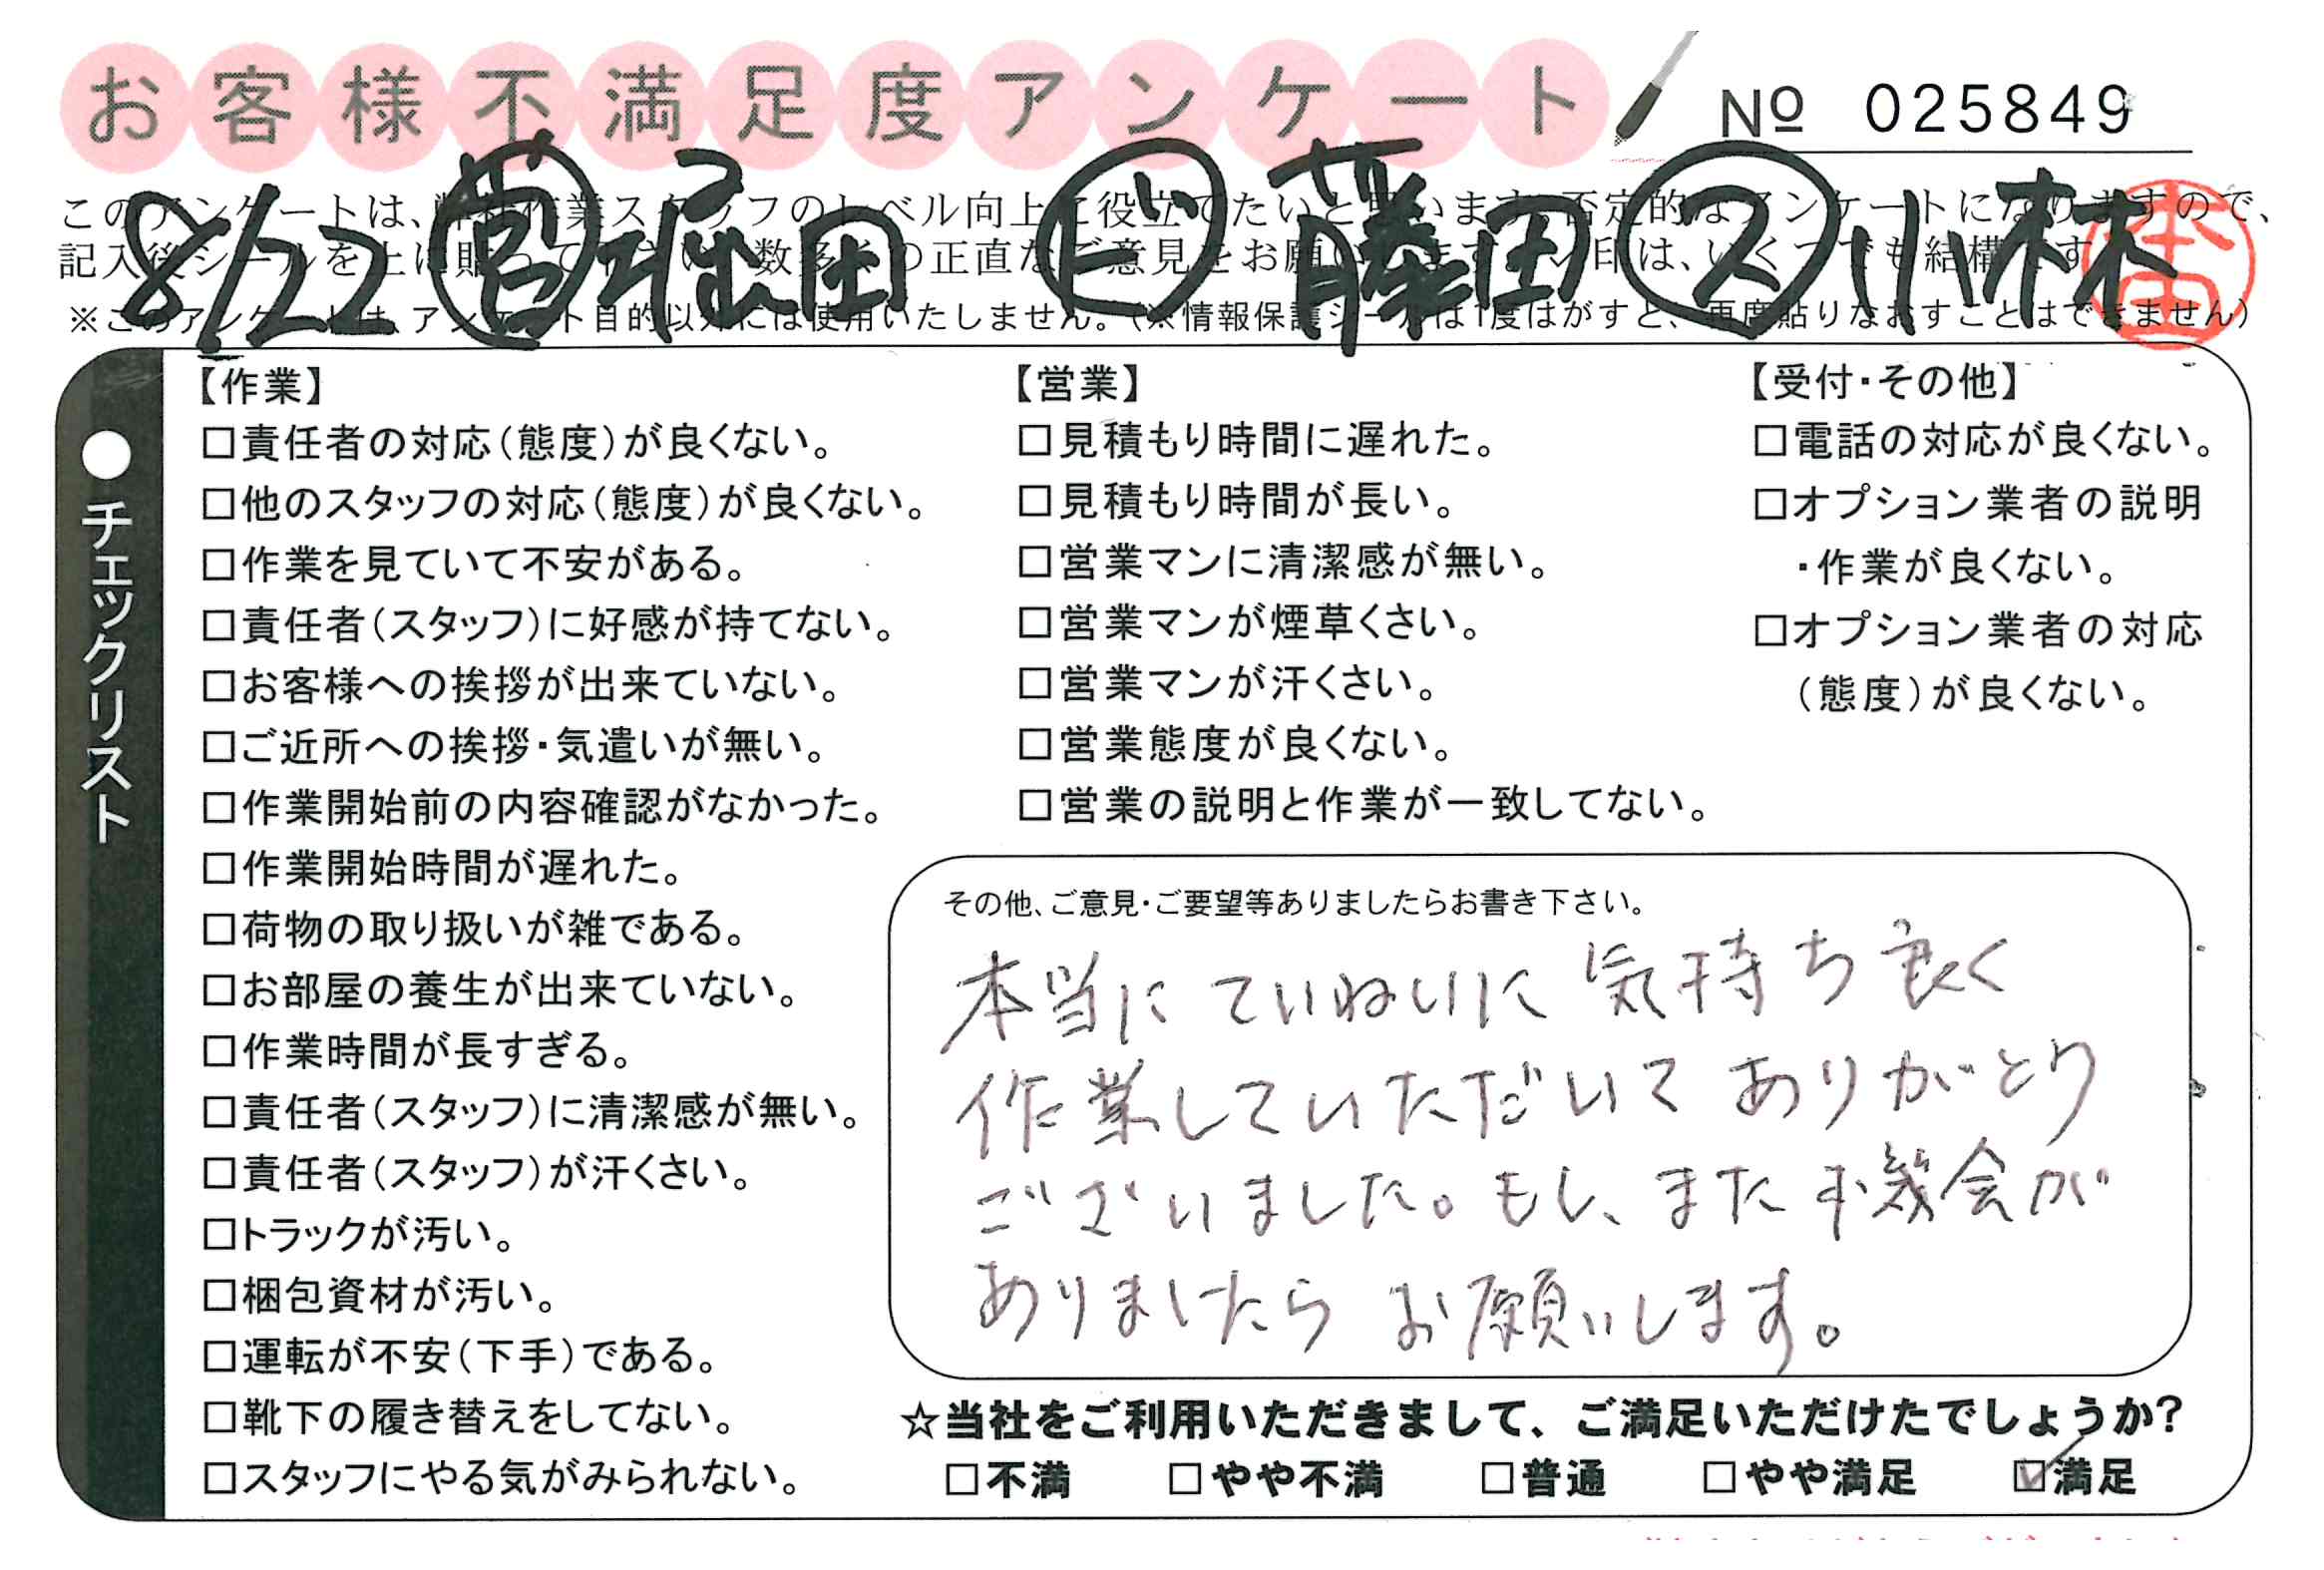 お客様不満足度アンケート
№ 025849
8/22 営 堀田 ド 藤田 ス 小林
このアンケートは、弊社作業スタッフのレベル向上に役立てたいと思います。否定的なアンケートになりますので、
記入後シールを上に貼って下さい。数多くの正直なご意見をお願いします。レ印は、いくつでも結構です。
※このアンケートは、アンケート目的以外には使用いたしません。(※情報保護シールは1度はがすと、再度貼りなおすことはできません)
●チェックリスト
【作業】
□責任者の対応(態度)が良くない。
□他のスタッフの対応(態度)が良くない。
□作業を見ていて不安がある。
□責任者(スタッフ)に好感が持てない。
□お客様への挨拶が出来ていない。
□ご近所への挨拶・気遣いが無い。
□作業開始前の内容確認がなかった。
□作業開始時間が遅れた。
□荷物の取り扱いが雑である。
□お部屋の養生が出来ていない。
□作業時間が長すぎる。
□責任者(スタッフ)に清潔感が無い。
□責任者(スタッフ)が汗くさい。
□トラックが汚い。
□梱包資材が汚い。
□運転が不安(下手)である。
□靴下の履き替えをしてない。
□スタッフにやる気がみられない。
【営業】
□見積もり時間に遅れた。
□見積もり時間が長い。
□営業マンに清潔感が無い。
□営業マンが煙草くさい。
□営業マンが汗くさい。
□営業態度が良くない。
□営業の説明と作業が一致してない。
【受付・その他】
□電話の対応が良くない。
□オプション業者の説明
・作業が良くない。
□オプション業者の対応
(態度)が良くない。
その他、ご意見・ご要望等ありましたらお書き下さい。
本当に ていねいに 気持ち良く
作業していただいて ありがとう
ございました。もし、また機会が
ありましたら お願いします。
☆当社をご利用いただきまして、ご満足いただけたでしょうか?
□不満 □やや不満 □普通 □やや満足 ☑満足